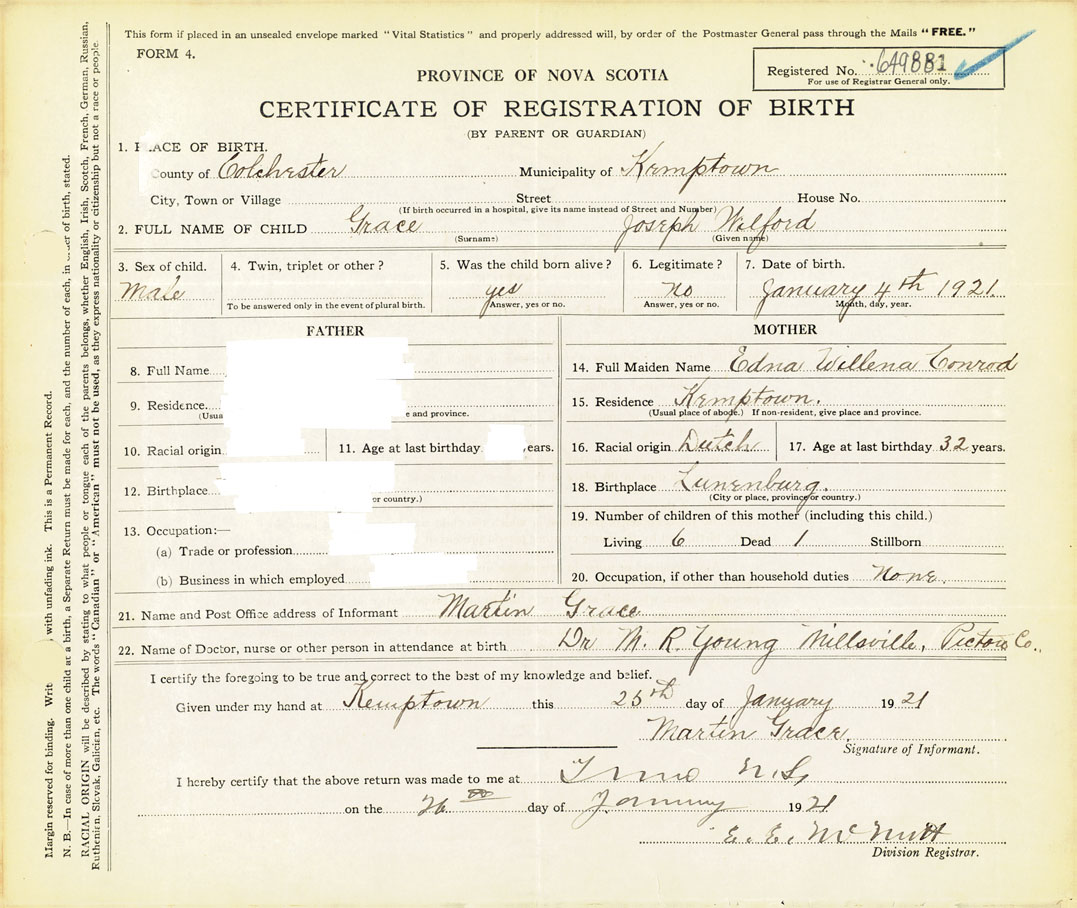 This form if placed in an unsealed envelope marked "Vital Statistics" and properly addressed will, by order of the Postmaster General pass through the Mails "FREE."
FORM 4.
Registered No. 649881
For use of Registrar General only.
PROVINCE OF NOVA SCOTIA
CERTIFICATE OF REGISTRATION OF BIRTH
(BY PARENT OR GUARDIAN)
1. ACE OF BIRTH.
County of Colchester Municipality of Kemptown
City, Town or Village Street House No.
(If birth occurred in a hospital, give its name instead of Street and Number)
2. FULL NAME OF CHILD Grace Joseph Wilford
(Surname) (Given name)
3. Sex of child. 4. Twin, triplet or other? 5. Was the child born alive? 6. Legitimate? 7. Date of birth.
Male yes no January 4th 1921.
To be answered only in the event of plural birth. Answer, yes or no. Answer, yes or no. Month, day, year.
FATHER
8. Full Name
9. Residence
(Usua e and province.
10. Racial origin 11. Age at last birthday years.
12. Birthplace
or country.)
13. Occupation:—
(a) Trade or profession
(b) Business in which employed
MOTHER
14. Full Maiden Name Edna Willena Conrod
15. Residence Kemptown.
(Usual place of abode.) If non-resident, give place and province.
16. Racial origin Dutch 17. Age at last birthday 32 years.
18. Birthplace Lunenburg.
(City or place, province or country.)
19. Number of children of this mother (including this child.)
Living 6 Dead 1 Stillborn
20. Occupation, if other than household duties None.
21. Name and Post Office address of Informant Martin Grace
22. Name of Doctor, nurse or other person in attendance at birth Dr M. R. Young Millsville, Pictou Co.
I certify the foregoing to be true and correct to the best of my knowledge and belief.
Given under my hand at Kemptown this 25th day of January 1921
Martin Grace
Signature of Informant.
I hereby certify that the above return was made to me at Truro N.S.
on the 26 day of January 1921
E. E. McNutt
Division Registrar.
Margin reserved for binding. Writ with unfading ink. This is a Permanent Record.
N. B.—In case of more than one child at a birth, a Separate Return must be made for each, and the number of each, in order of birth, stated.
RACIAL ORIGIN will be described by stating to what people or tongue each of the parents belongs, whether English, Irish, Scotch, French, German, Russian,
Ruthenian, Slovak, Galician, etc. The words "Canadian" or "American" must not be used, as they express nationality or citizenship but not a race or people.